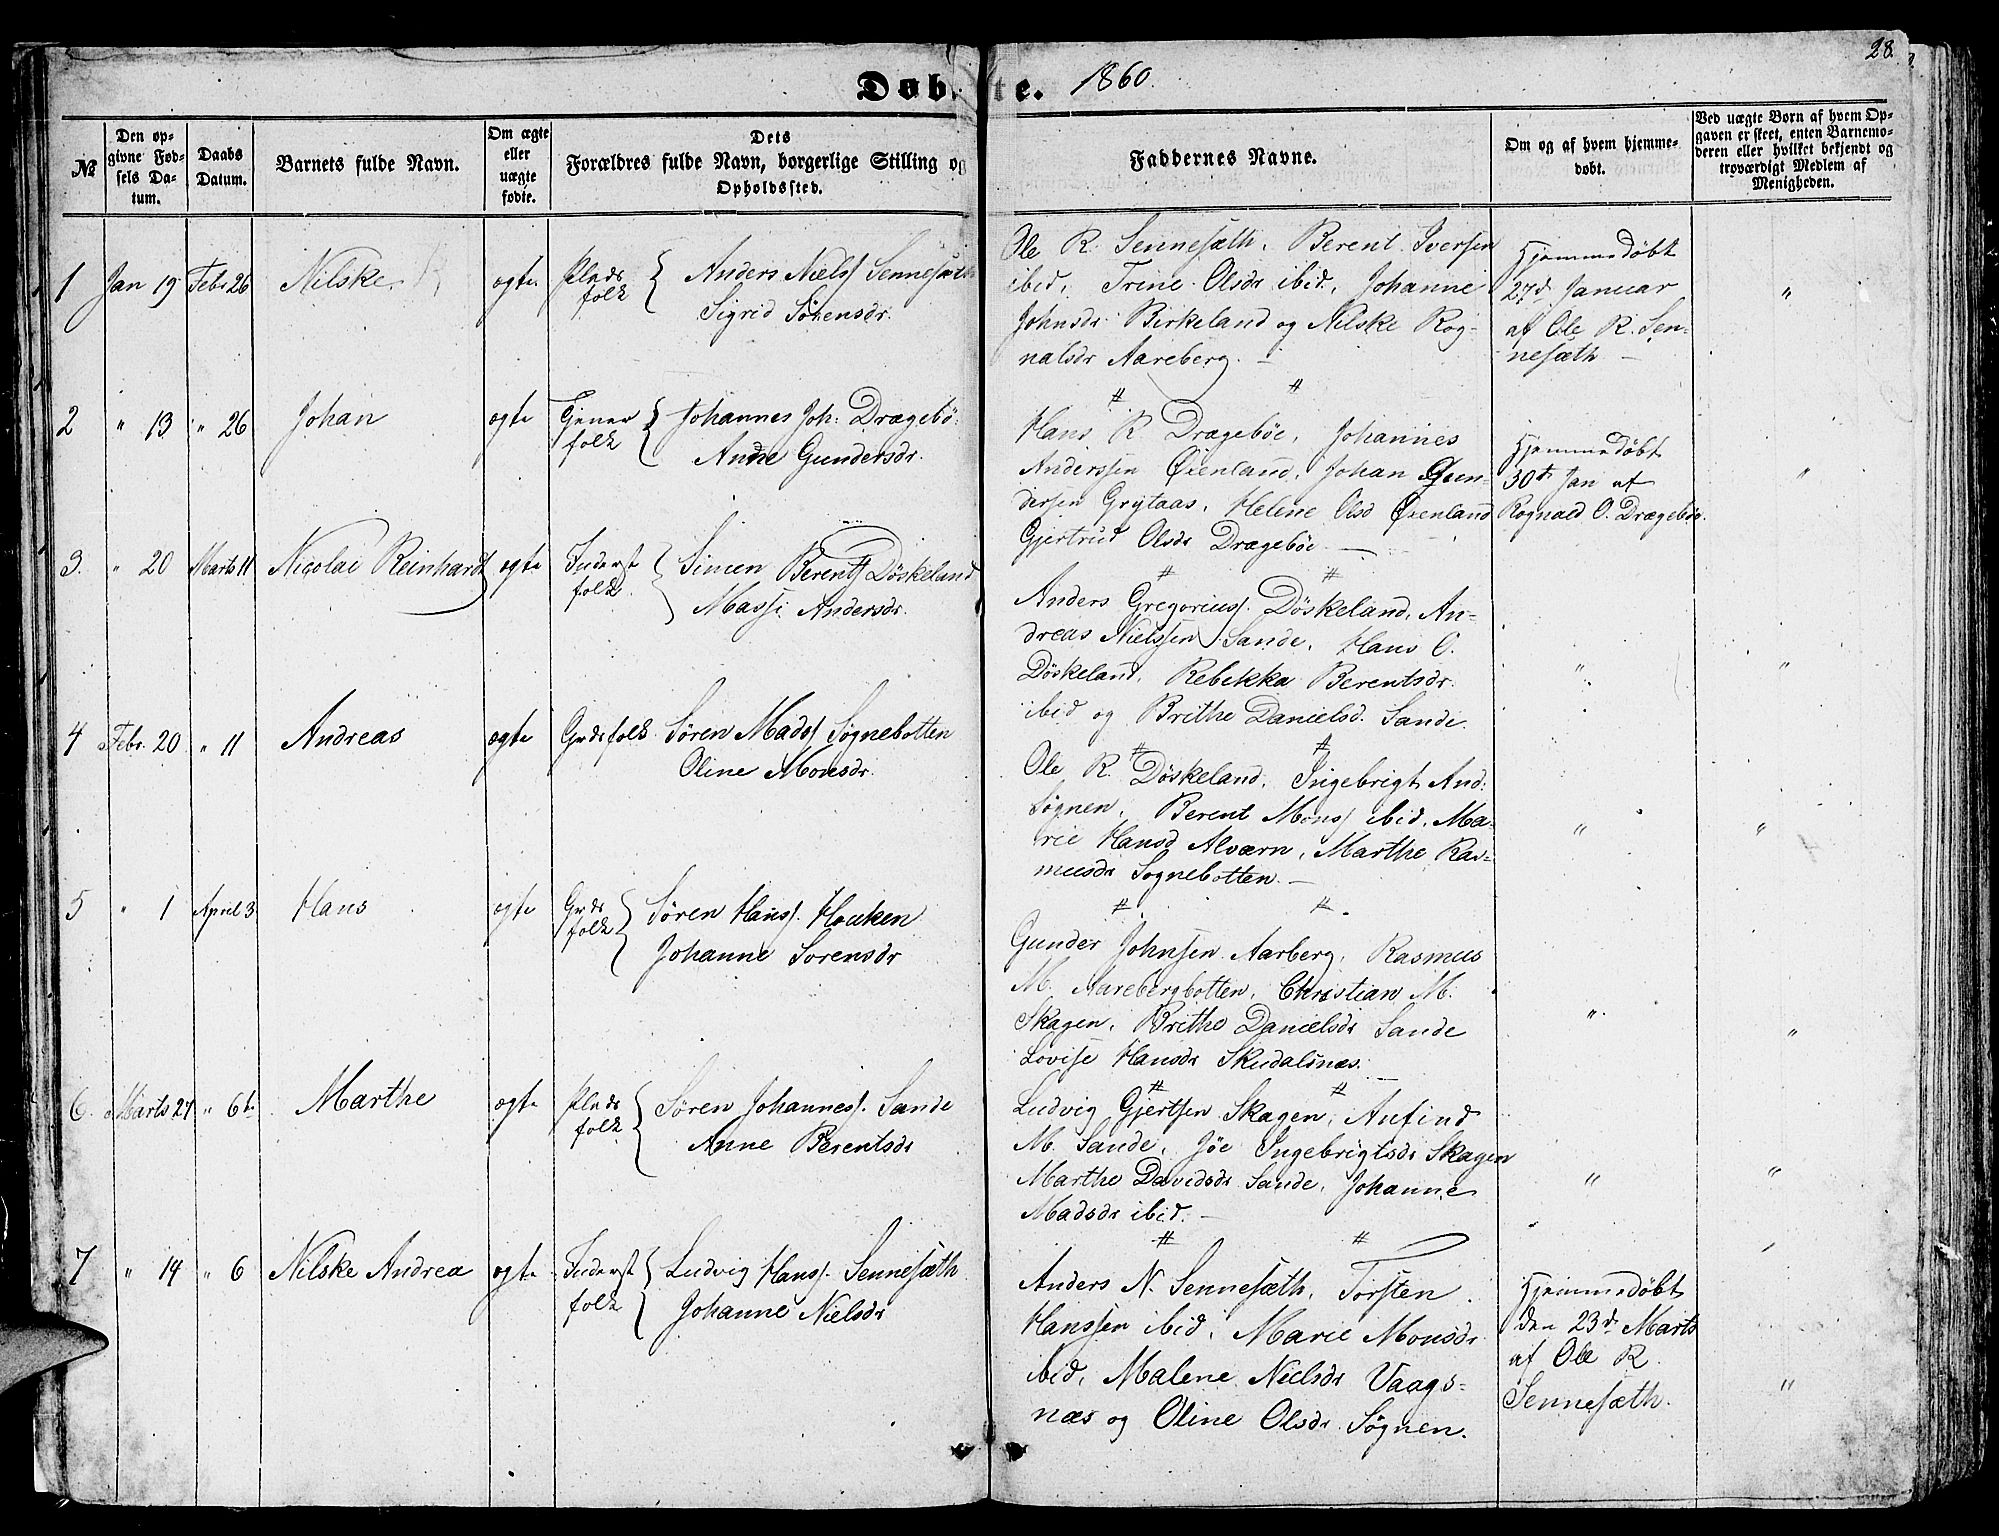 28.
Døbte. 1860.
№
Den opgivne Fødsels Datum.
Daabs Datum.
Barnets fulde Navn.
Om ægte eller uægte fødte.
Dets Forældres fulde Navn, borgerlige Stilling og Opholdssted.
Faddernes Navne.
Om og af hvem hjemmedøbt.
Ved uægte Børn af hvem Opgaven er skeet, enten Barnemoderen eller hvilket bekjendt og troværdigt Medlem af Menigheden.
1 Jan 19 Febr 26 Nilske ægte Plads folk { Anders Nielss Sennesæth
Sigrid Sörensdr.
Ole R. Sennesæth, Berent Iversen
ibid, Trine Olsdr ibid, Johanne
Johnsdr Birkeland og Nilske Rog-
nalsdr Aareberg. —
Hjemmedøbt
27d Januar
af Ole R. Sen-
nesæth —
"
2 " 13 " 26 Johan ægte Gjener folk { Johannes Joh: Drægebö
Anne Gundersdr.
Hans R. Drægebøe, Johannes
Anderssen Øxenland, Johan
dersen Grytaas, Helene Olsd Øxenland
Gjertrud Olsdr Drægebøe —
Hjemmedøbt
30te Jan af
Rognald O. Drægebøe.
"
3. " 20 Marts 11 Nicolai Reinhardt ægte Inderst folk { Simen Berents Döskeland
Massi Andersdr.
Anders Gregoriuss. Döskeland, An-
dreas Nielssen Sande, Hans O.
Döskeland, Rebekka Berentsdr
ibid og Brithe Danielsd. Sande.
" "
4 Febr. 20 " 11 Andreas ægte Grdsfolk Sören Madss Sognebotten
Oline Monsdr.
Ole R. Döskeland, Ingebrigt And:
Sognen, Berent Monss ibid, Ma-
rie Hansd Alværn, Marthe Ras-
musdr Sognebotten. —
" "
5 " 1 April 3 Hans ægte Grds folk { Sören Hanss. Houken
Johanne Sorensdr
Gunder Johnsen Aarberg, Rasmus
M. Aarebergbotten, Christian M.
Skagen, Brithe Danielsdr Sande
Lovise Hansdr Skudalsnæs.
" "
6. Marts 27 " 6te Marthe ægte Plads folk { Sören Johanness. Sande
Anne Berentsdr
Ludvig Gjertsen Skagen, Anfind
M. Sande, Jöe Ingebrigtsdr Skagen
Marthe Davidsdr Sande, Johanne
Madsdr ibid. —
" "
7 " 14 " 6 Nilske Andrea ægte Inderst folk { Ludvig Hanss. Sennesæth
Johanne Nielsdr
Anders N. Sennesæth, Torsten
Hanssen ibid, Marie Monsdr
ibid, Malene Nielsdr Vaags-
næs og Oline Olsdr Søgnen.
Hjemmedøbt
den 23de Marts
af Ole R.
Sennesæth.
"